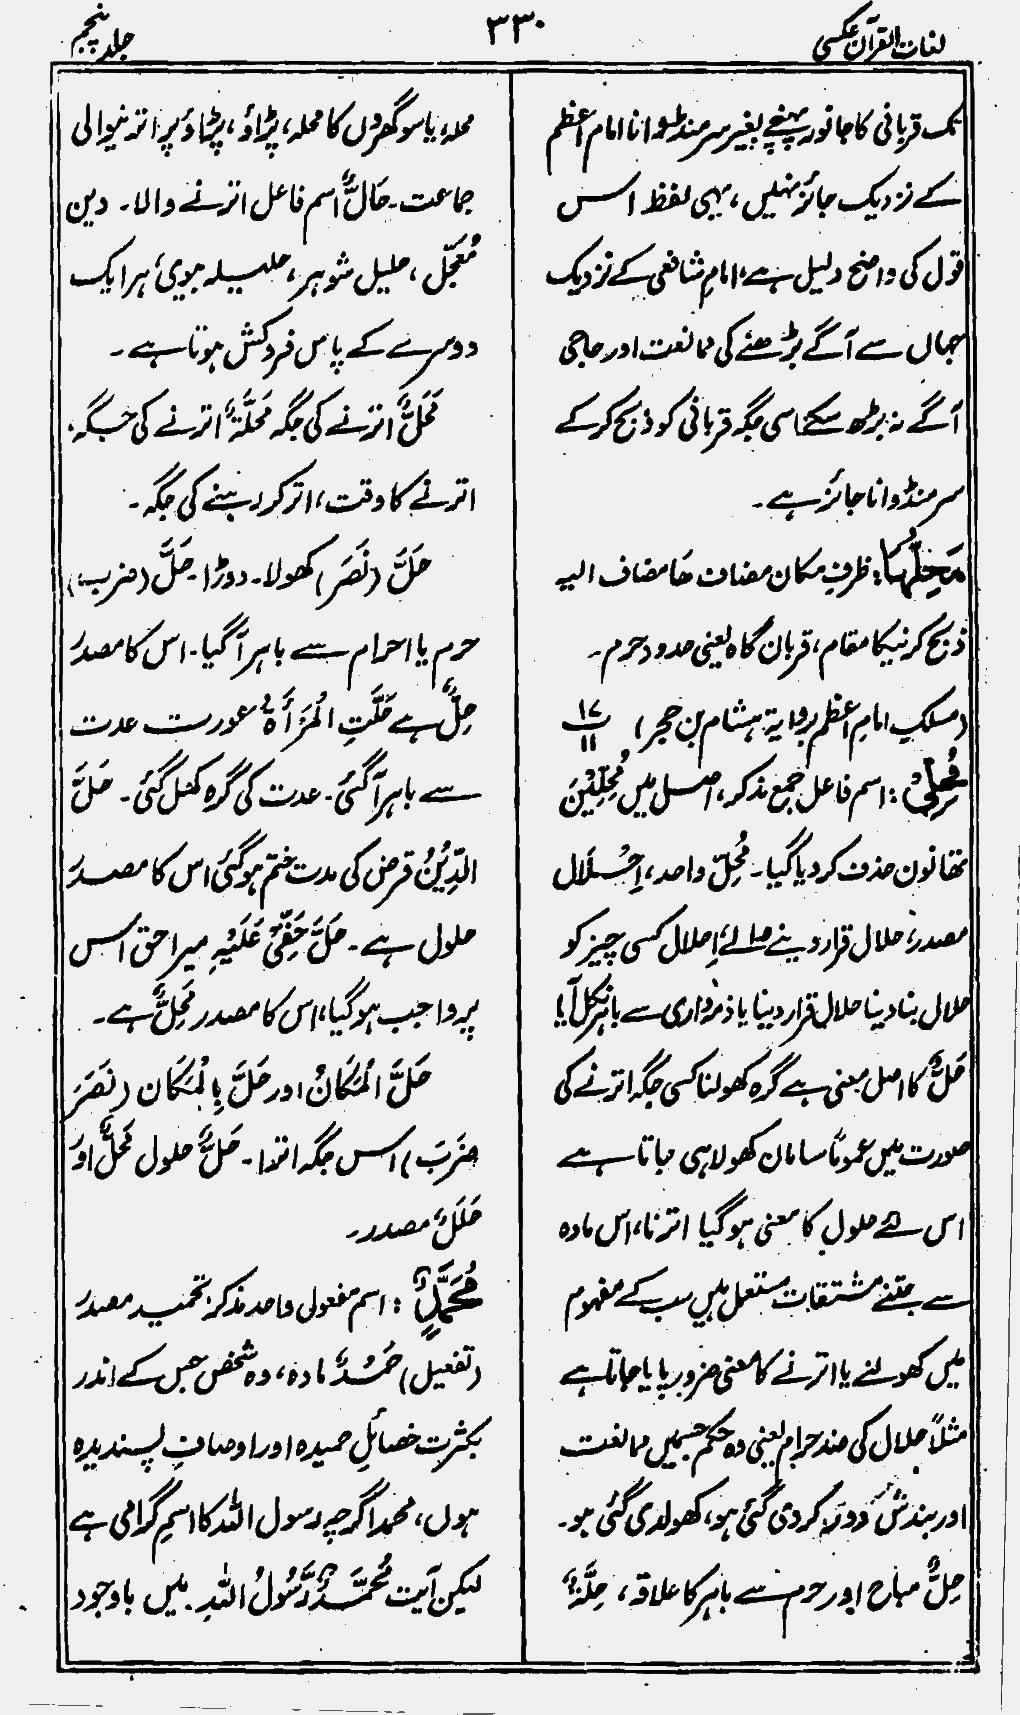 لغات القرآن عکسی
۳۳۰
جلد پنجم
تک قربانی کا جانور پہنچے بغیر سر منڈوانا امام اعظم
کے نزدیک جائز نہیں، یہی لفظ اس
قول کی واضح دلیل ہے، امام شافعی کے نزدیک
جہاں سے آگے بڑھنے کی ممانعت اور حاجی
آگے نہ بڑھ سکے اسی جگہ قربانی کو ذبح کر کے
سر منڈوانا جائز ہے۔
مَحِلُّهَا: ظرف مکان مضاف ھا مضاف الیہ
ذبح کرنیکا مقام، قربان گاہ یعنی حدود حرم۔
(مسلک امام اعظم بروایۃ ہشام بن حجر) ۱۷ ۱۱
مُحِلِّی: اسم فاعل جمع مذکر، اصل میں مُحِلِّیْنَ
تھا نون حذف کر دیا گیا۔ مُحِلّ واحد، اِحْلَال
مصدر، حلال قرار دینے والے، اِحلال کسی چیز کو
حلال بنا دینا حلال قرار دینا یا ذمہ داری سے باہر نکل آیا
حَلٌّ کا اصل معنی ہے گرہ کھولنا کسی جگہ اترنے کی
صورت میں عموماً سامان کھولا ہی جاتا ہے
اس لئے حلول کا معنی ہو گیا اترنا، اس مادہ
سے جتنے مشتقات مستعمل ہیں سب کے مفہوم
میں کھولنے یا اترنے کا معنی ضرور پایا جاتا ہے
مثلاً حلال کی ضد حرام یعنی وہ حکم جسمیں ممانعت
اور بندش دور کر دی گئی ہو، کھولدی گئی ہو۔
حِلٌّ مباح اور حرم سے باہر کا علاقہ، حِلَّةٌ
محلہ یا سو گھروں کا محلہ، پڑاؤ، پڑاؤ پر اترنیوالی
جماعت۔ حَالٌّ اسم فاعل اترنے والا۔ دین
مُعَجَّل، حلیل شوہر، حلیلہ بیوی، ہر ایک
دوسرے کے پاس فروکش ہوتا ہے۔
مَحَلٌّ اترنے کی جگہ مَحَلَّةٌ اترنے کی جگہ،
اترنے کا وقت، اتر کر رہنے کی جگہ۔
حَلَّ (نَصَرَ) کھولا۔ دوڑا۔ حَلَّ (ضرب)
حرم یا احرام سے باہر آگیا۔ اس کا مصدر
حِلٌّ ہے حَلَّتِ الْمَرْأَةُ عورت عدت
سے باہر آگئی۔ عدت کی گرہ کھل گئی۔ حَلَّ
الدَّيْنُ قرض کی مدت ختم ہو گئی اس کا مصدر
حلول ہے۔ حَلَّ حَقِّیْ عَلَيْهِ میرا حق اس
پر واجب ہو گیا، اس کا مصدر مَحِلٌّ ہے۔
حَلَّ الْمَكَانَ اور حَلَّ بِالْمَكَان (نَصَرَ
ضَرَبَ) اس جگہ اترا۔ حَلٌّ حلول مَحَلٌّ اور
حَلَلٌ مصدر۔
مُحَمَّدٌ: اسم مفعول واحد مذکر، تحمید مصدر
(تفعیل) حَمْدٌ مادہ، وہ شخص جس کے اندر
بکثرت خصائل حمیدہ اور اوصاف پسندیدہ
ہوں، محمد اگرچہ رسول اللہ کا اسم گرامی ہے
لیکن آیت مُحَمَّدٌ رَّسُولُ اللّٰهِ میں باوجود